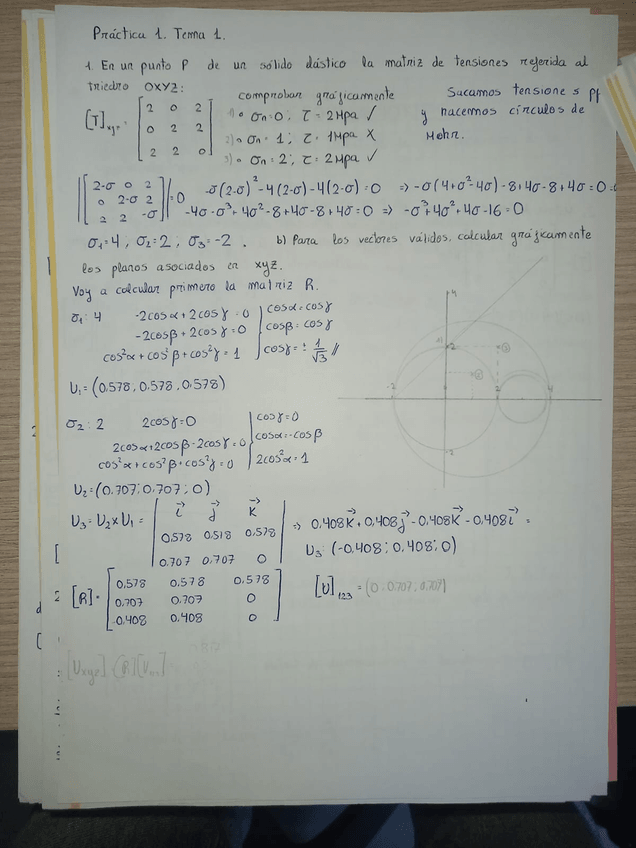 Práctica 1. Tema 1.
1. En un punto P de un sólido elástico la matriz de tensiones referida al
triedro OXYZ: comprobar gráficamente Sacamos tensiones pp
[T]xyz = [2 0 2 / 0 2 2 / 2 2 0]
1) σn=0; τ=2Mpa ✓ y hacemos círculos de
2) σn=1; τ=1Mpa X Mohr.
3) σn=2; τ=2Mpa ✓
|2-σ 0 2 / 0 2-σ 2 / 2 2 -σ| = 0 -σ(2-σ)²-4(2-σ)-4(2-σ)=0 => -σ(4+σ²-4σ)-8+4σ-8+4σ=0
-4σ-σ³+4σ²-8+4σ-8+4σ=0 => -σ³+4σ²+4σ-16=0
σ1=4, σ2=2; σ3=-2. b) Para los vectores válidos, calcular gráficamente
los planos asociados en xyz.
Voy a calcular primero la matriz R.
σ1: 4 -2cosα+2cosγ=0 cosα=cosγ
-2cosβ+2cosγ=0 cosβ=cosγ
cos²α+cos²β+cos²γ=1 cosγ=± 1/√3 //
U1=(0,578,0,578,0,578)
σ2: 2 2cosγ=0 cosγ=0
2cosα+2cosβ-2cosγ=0 cosα=-cosβ
cos²α+cos²β+cos²γ=0 2cos²α=1
U2=(0,707;0,707;0)
U3=U2xU1= |i j k / 0,578 0,518 0,578 / 0,707 0,707 0| => 0,408k+0,408j-0,408k-0,408i =
U3:(-0,408;0,408;0)
[R]= [0,578 0,578 0,578 / 0,707 0,707 0 / -0,408 0,408 0] [U]123 = (0;0,707,0,707)
[Uxyz]
4
2
-2
2
4
-2